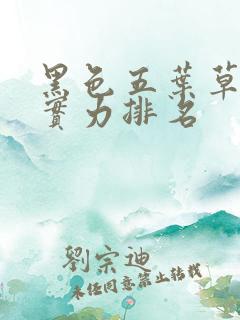 黑色五葉草
實力排名
劉宗迪
未经同意禁止转载